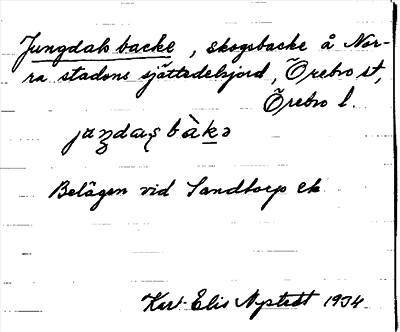 Jungdals backe, skogsbacke å Nor-
ra stadens sjättedelsjord, Örebro st,
Örebro l.
Belägen vid Sandtorp ek
Karl-Elis Nystedt 1934